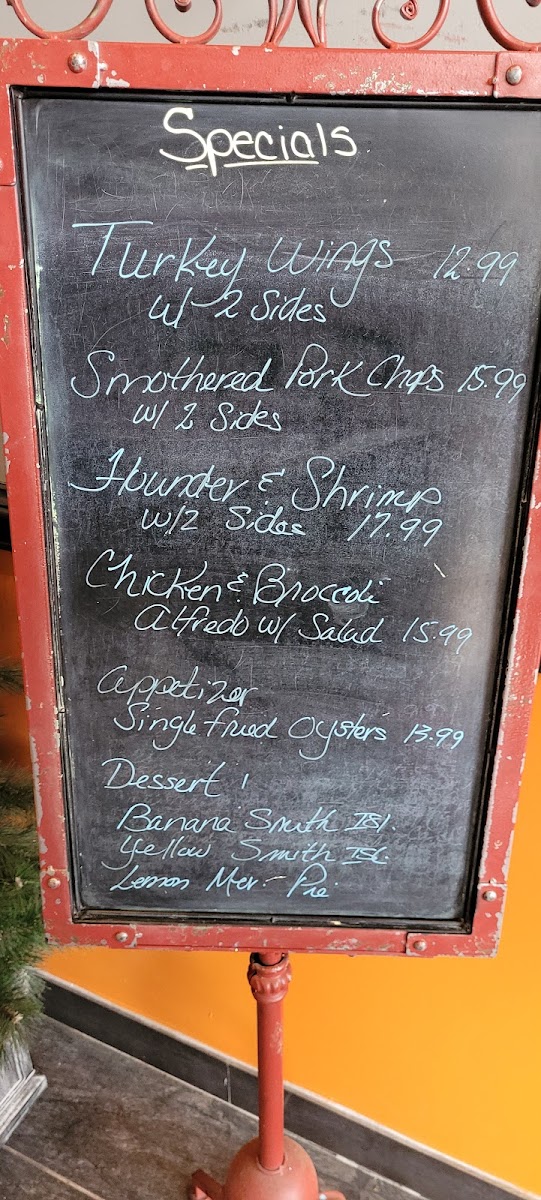 Specials
Turkey Wings 12.99
w/ 2 Sides
Smothered Pork Chops 15.99
w/ 2 Sides
Flounder & Shrimp
w/2 Sides 17.99
Chicken & Broccoli
Alfredo w/ Salad 15.99
Appetizer
Single fried Oysters 13.99
Dessert
Banana Smith Isl.
Yellow Smith Isl.
Lemon Mer. Pie